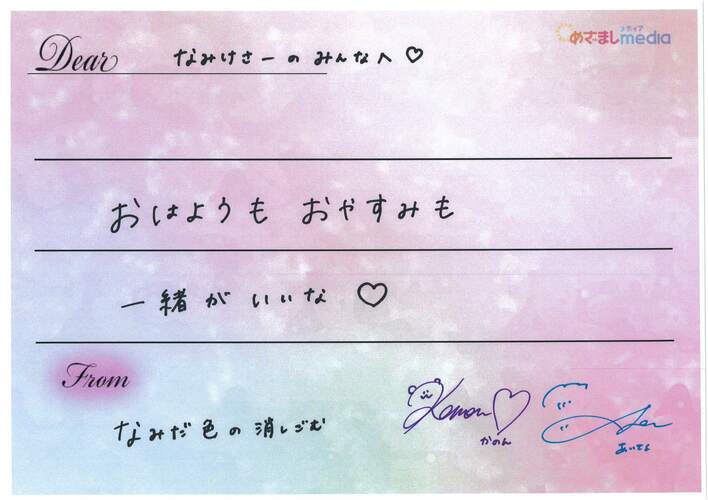 Dear なみけさーのみんなへ♡
メディア
めざましmedia
おはようも おやすみも
一緒がいいな ♡
From
Kanon♡
かのん
なみだ色の消しごむ